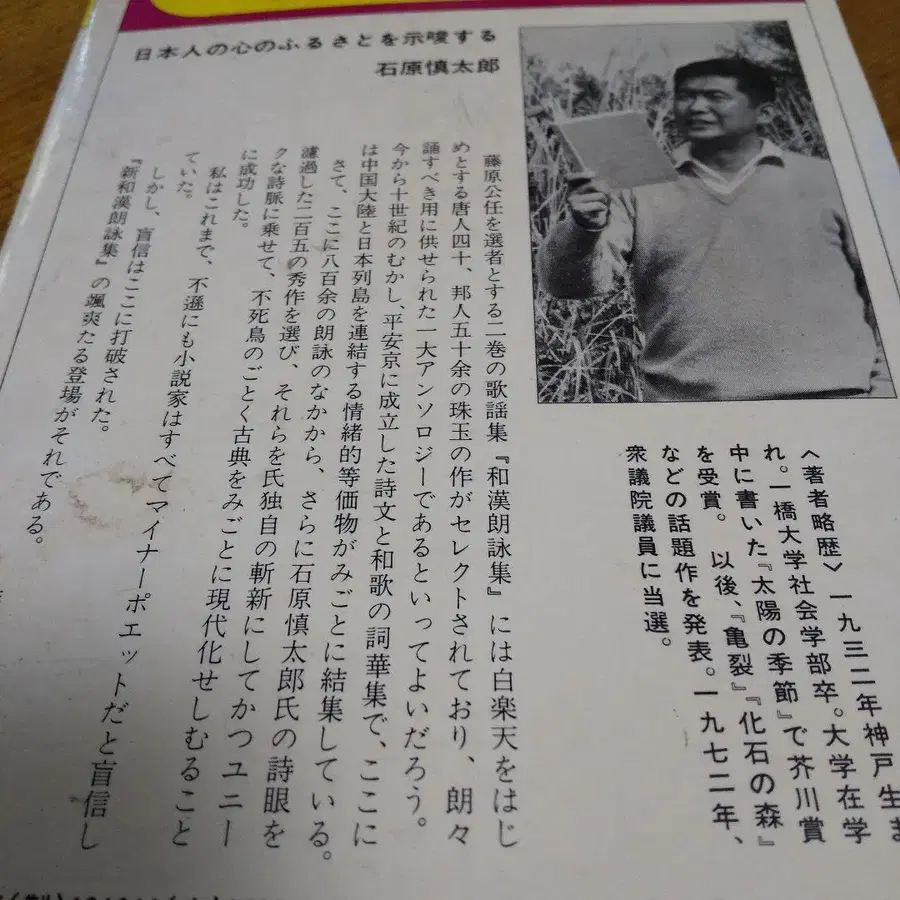 日本人の心のふるさとを示唆する
石原慎太郎
藤原公任を選者とする二巻の歌謡集『和漢朗詠集』には白楽天をはじ
めとする唐人四十、邦人五十余の珠玉の作がセレクトされており、朗々
誦すべき用に供せられた一大アンソロジーであるといってよいだろう。
今から十世紀のむかし、平安京に成立した詩文と和歌の詞華集で、ここに
は中国大陸と日本列島を連結する情緒的等価物がみごとに結集している。
さて、ここに八百余の朗詠のなかから、さらに石原慎太郎氏の詩眼を
濾過した二百五の秀作を選び、それらを氏独自の斬新にしてかつユニー
クな詩脈に乗せて、不死鳥のごとく古典をみごとに現代化せしむること
に成功した。
私はこれまで、不遜にも小説家はすべてマイナーポエットだと盲信し
ていた。
しかし、盲信はここに打破された。
『新和漢朗詠集』の颯爽たる登場がそれである。
〈著者略歴〉一九三二年神戸生ま
れ。一橋大学社会学部卒。大学在学
中に書いた『太陽の季節』で芥川賞
を受賞。以後、『亀裂』『化石の森』
などの話題作を発表。一九七二年、
衆議院議員に当選。